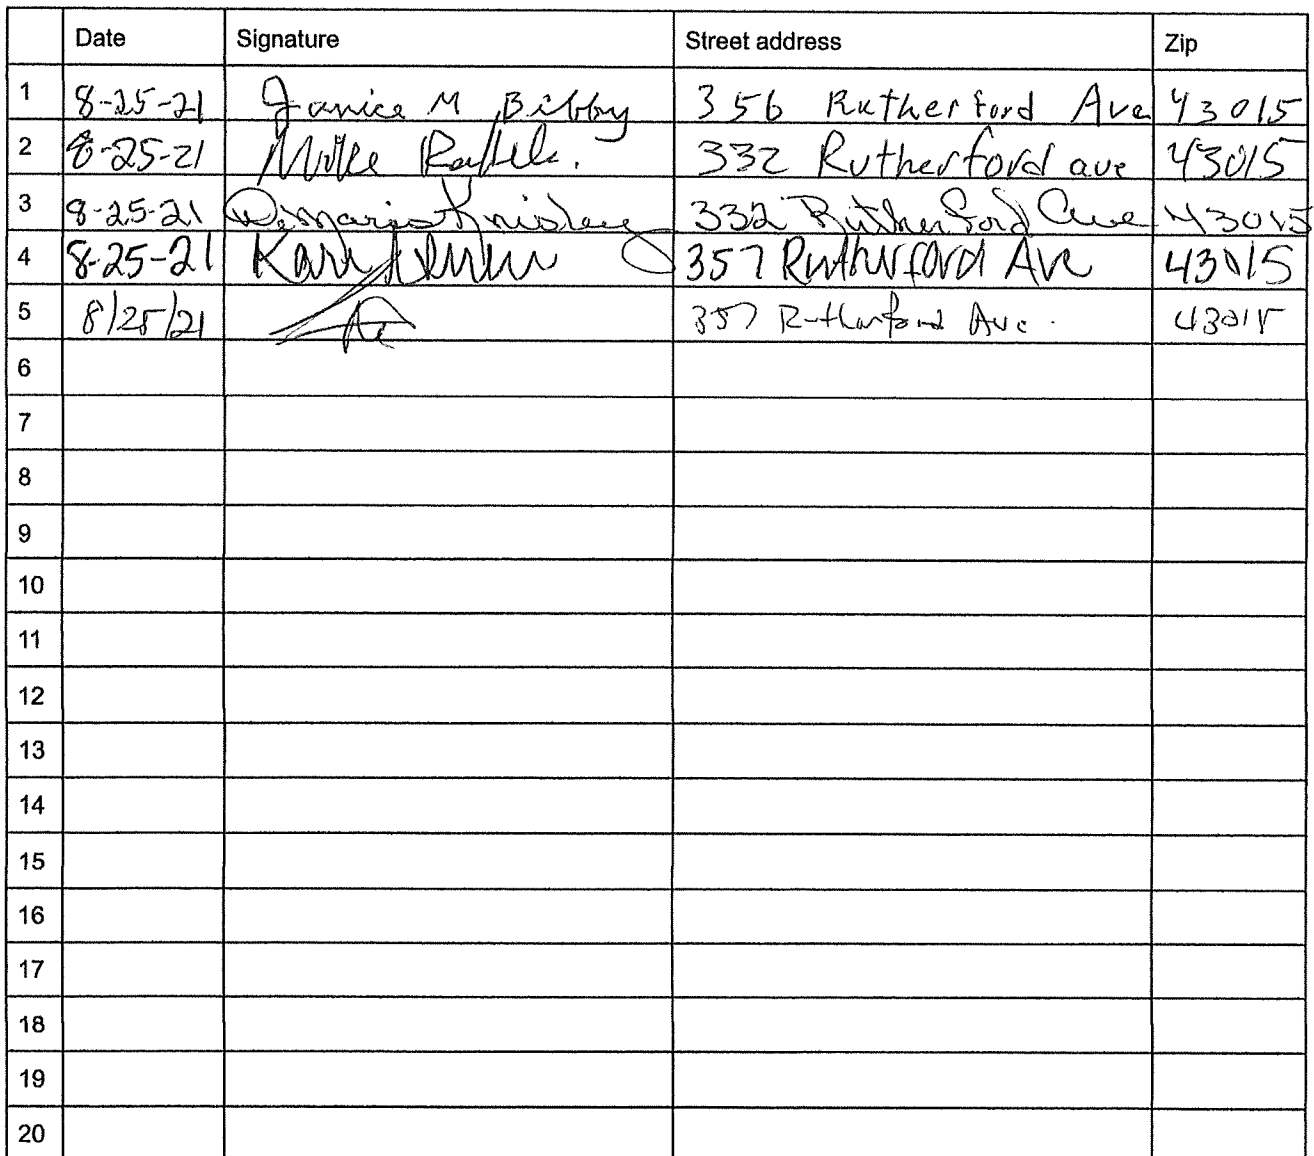 Date Signature Street address Zip
1 8-25-21 Janice M Bibby 356 Rutherford Ave 43015
2 8-25-21 Mike 332 Rutherford ave 43015
3 8-25-21 Damaris Knisley 332 Rutherford Ave 43015
4 8-25-21 357 Rutherford Ave 43015
5 8/25/21 357 Rutherford Ave. 43015
6
7
8
9
10
11
12
13
14
15
16
17
18
19
20